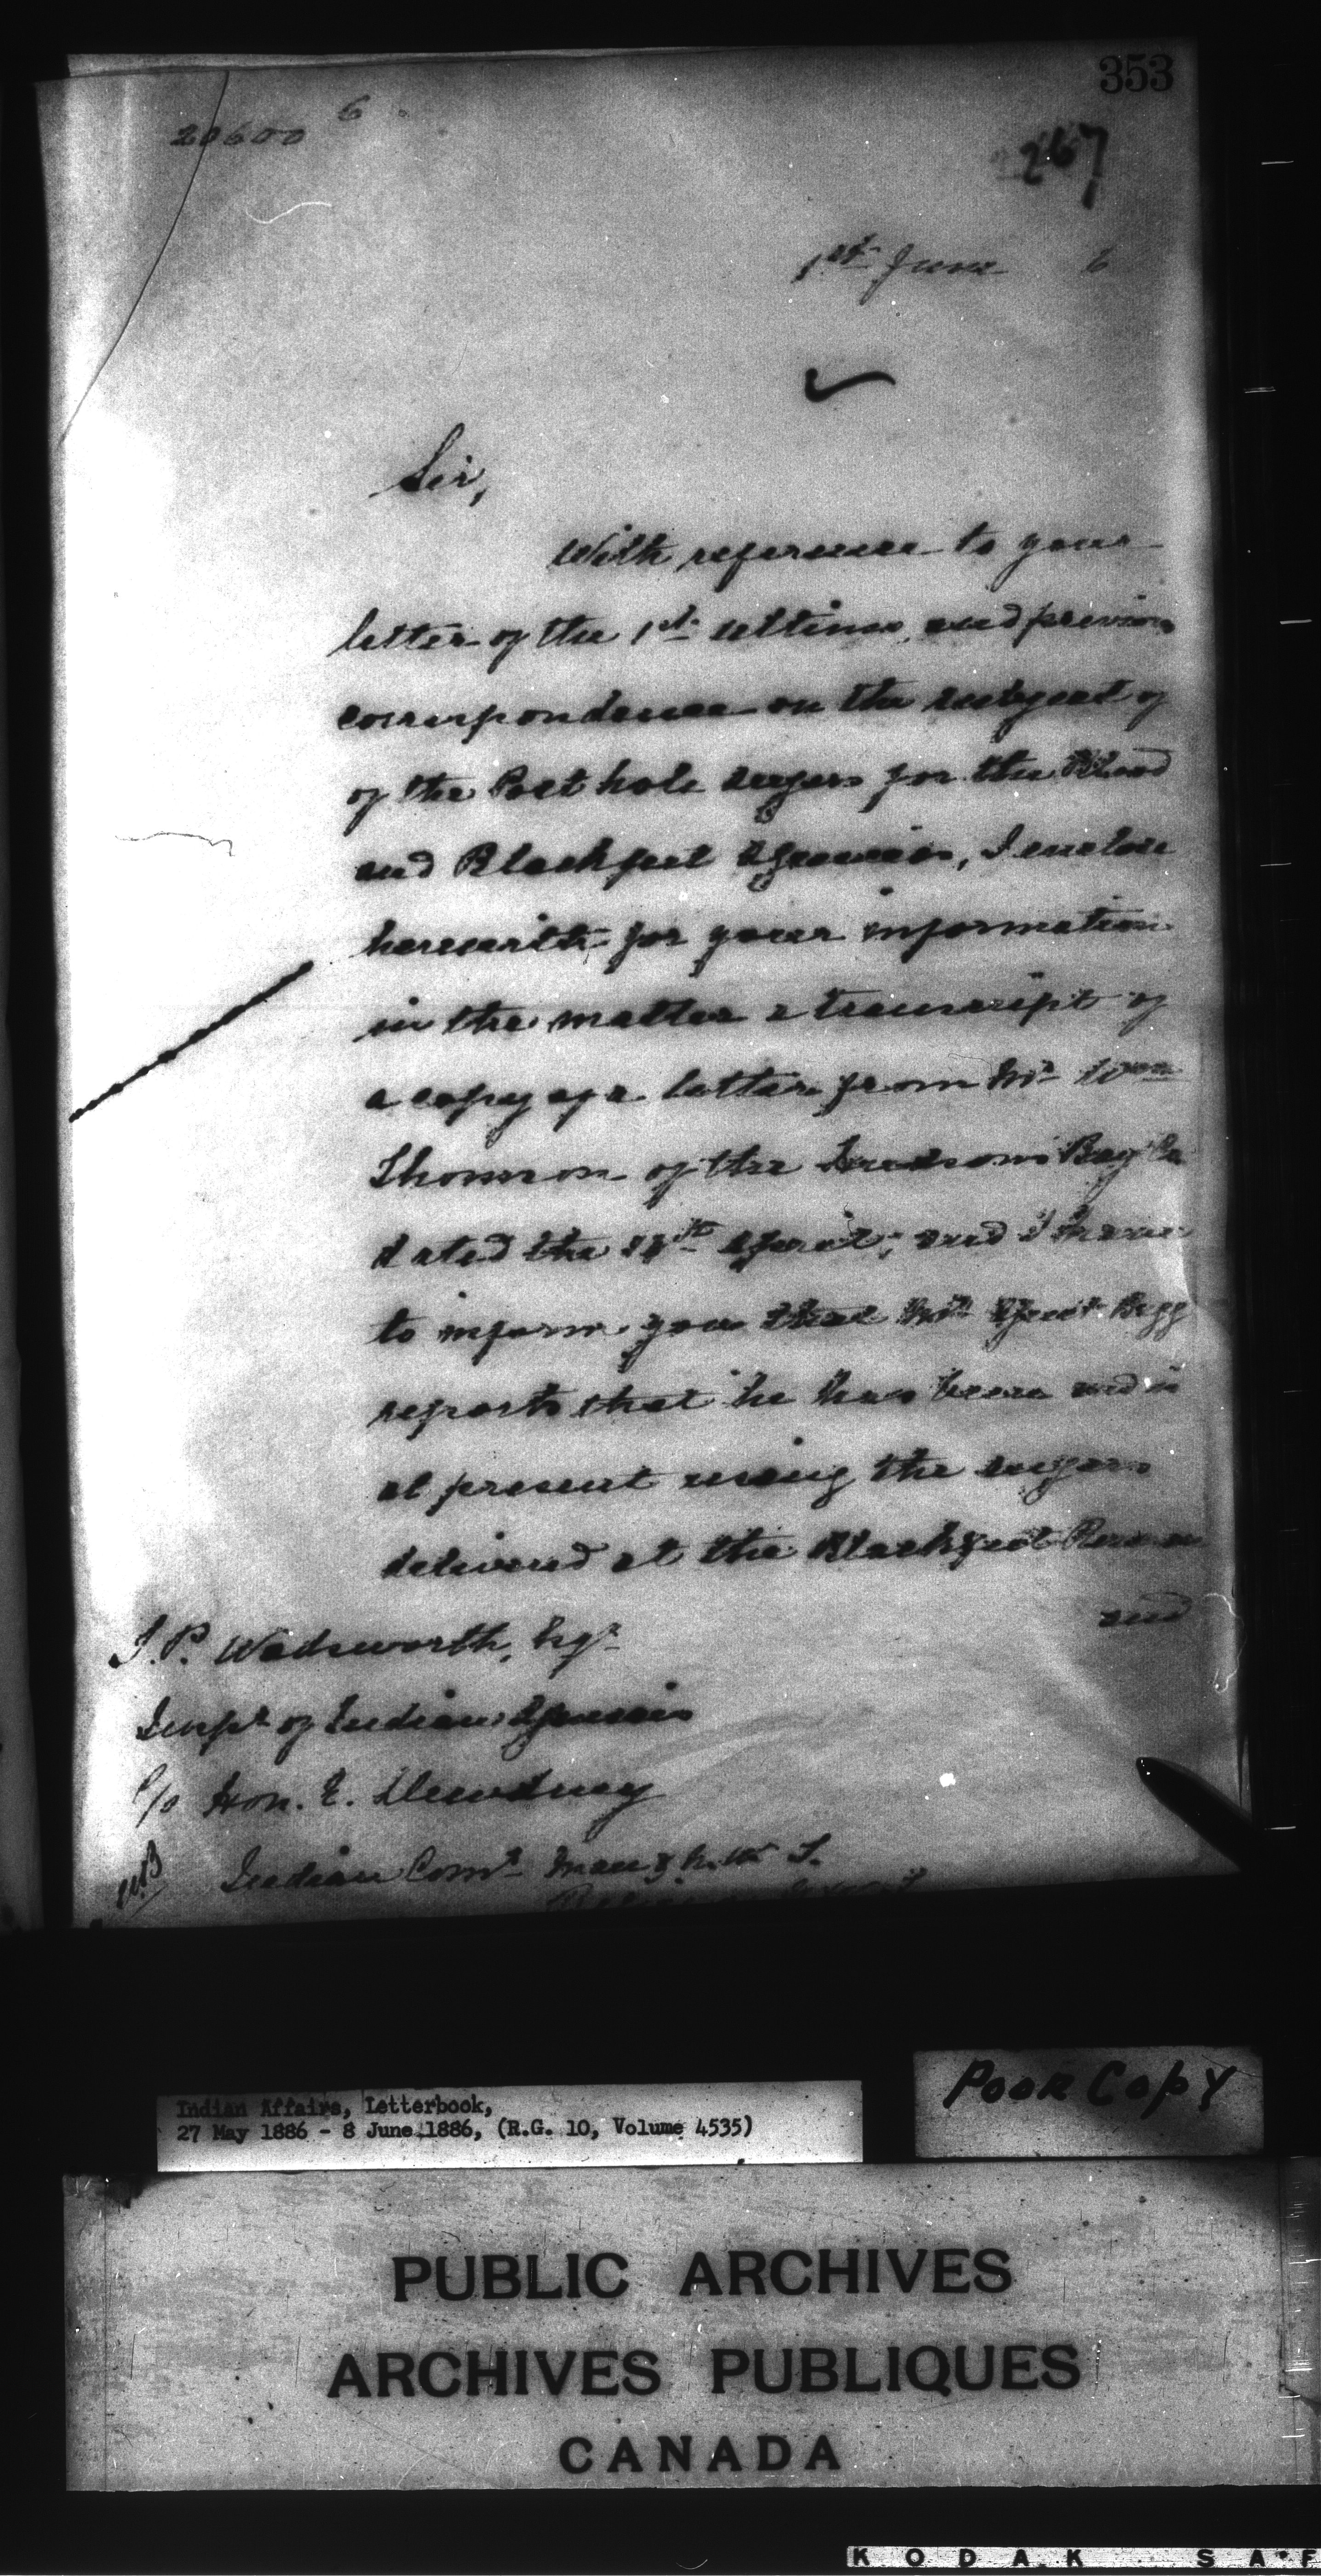 353
20600 6
267
1st June 6
Sir,
With reference to your
letter of the 1st ultimo, and previous
correspondence on the subject of
of the Post hole augers for the Blood
and Blackfeet Agencies, I enclose
herewith for your information
in the matter a transcript of
a copy of a letter from Mr Wm
Thomson of the Hudsons Bay Co
dated the April; and I have
to inform you that Mr Agent Begg
reports that he has been and is
at present using the augers
delivered at the Blackfoot
and
T.P. Wadsworth, Esqr
Inspr of Indian Agencies
c/o Hon. E. Dewdney
Indian Comr Man & N.W.T.
Indian Affairs, Letterbook,
27 May 1886 - 8 June 1886, (R.G. 10, Volume 4535)
Poor Copy
PUBLIC ARCHIVES
ARCHIVES PUBLIQUES
CANADA
KODAK SAF